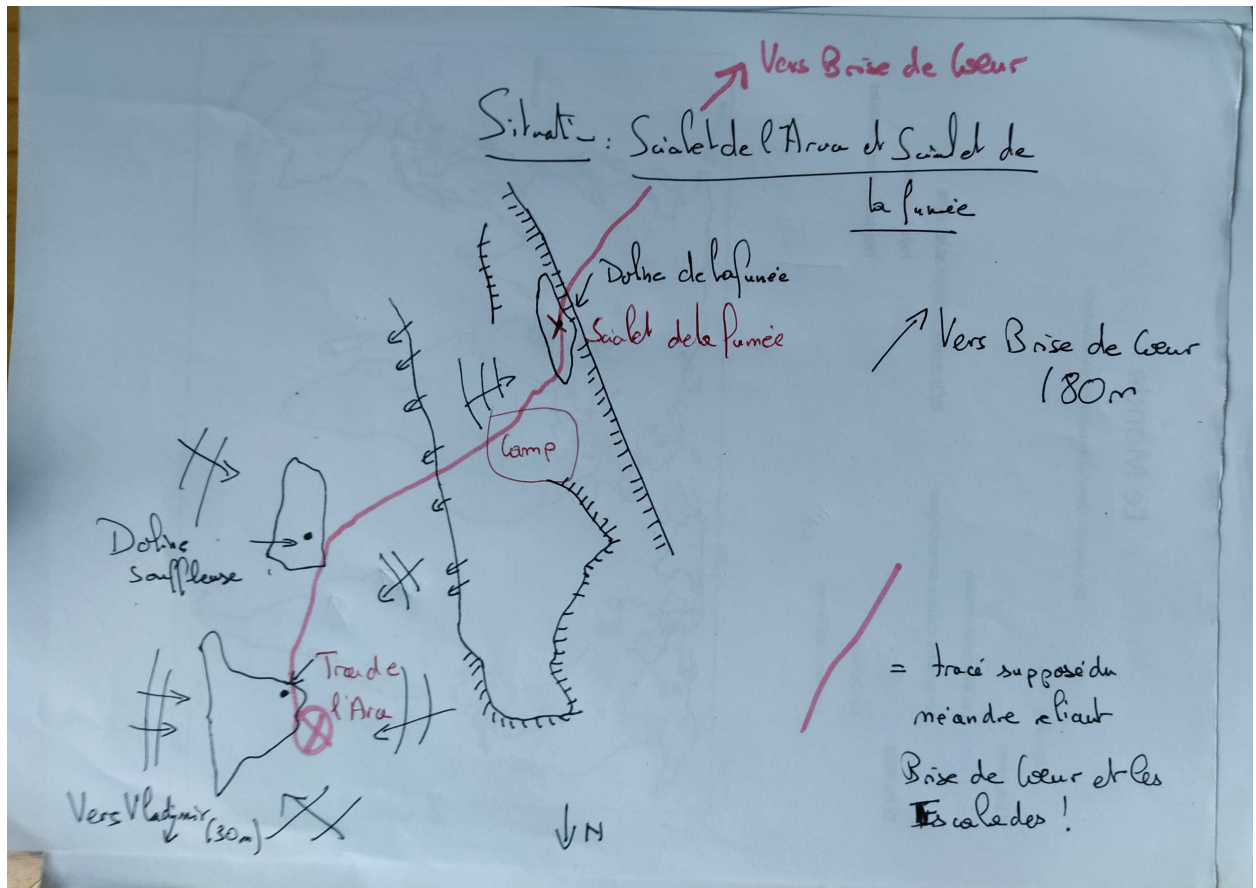 Vers Brise de Coeur
Situati-: Scialet de l'Arva et Scialet de
la fumée
Doline de la fumée
Scialet de la fumée
Vers Brise de Coeur
180m
Camp
Doline
souffleuse
Trou de
l'Ara
= tracé supposé du
méandre reliant
Brise de Coeur et les
Escalades !
Vers Vladymir
(30m)
N